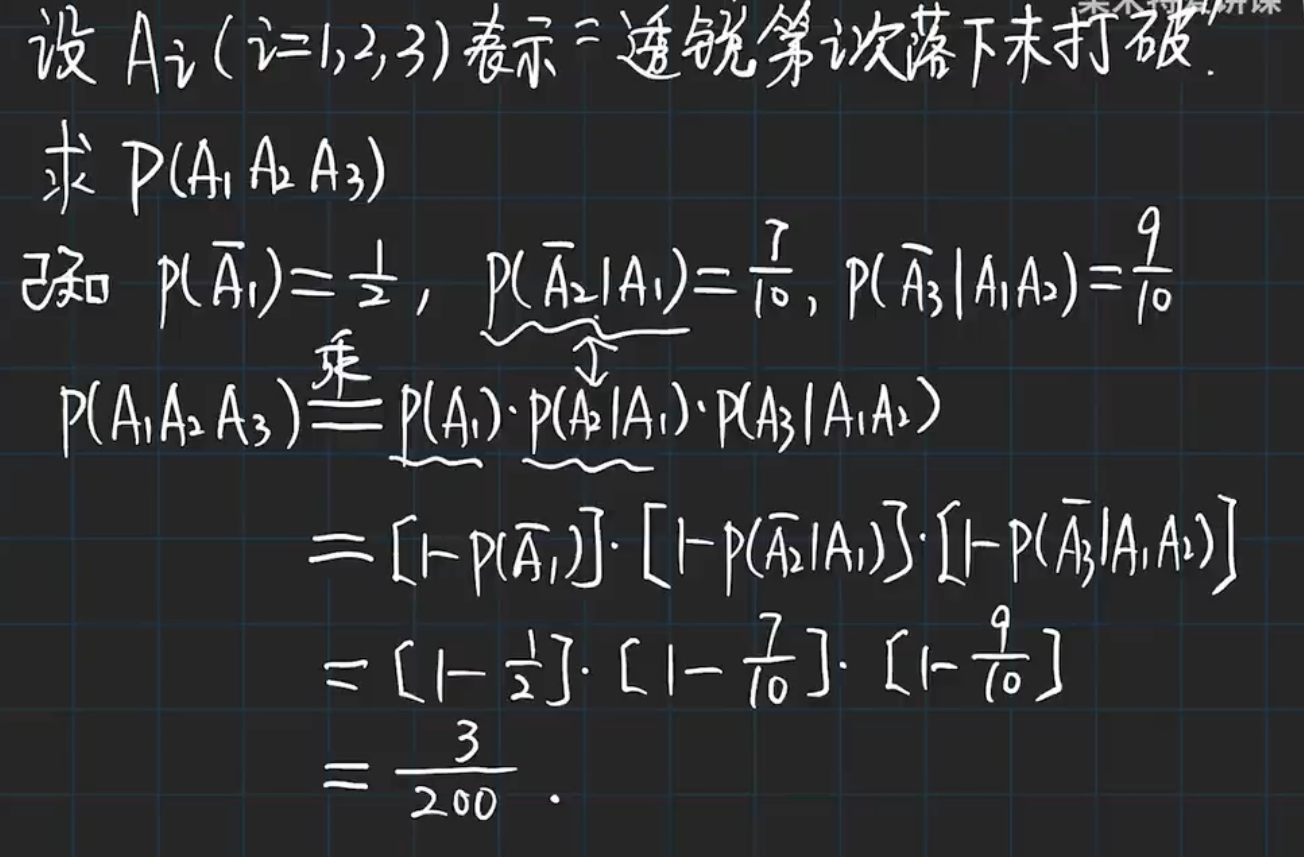 设 Ai (i=1,2,3) 表示“透镜第i次落下未打破”.
求 P(A₁ A₂ A₃)
已知 P(Ā₁)=1/2, P(Ā₂|A₁)=7/10, P(Ā₃|A₁A₂)=9/10
乘
P(A₁A₂A₃) = P(A₁)·P(A₂|A₁)·P(A₃|A₁A₂)
= [1-P(Ā₁)]·[1-P(Ā₂|A₁)]·[1-P(Ā₃|A₁A₂)]
= [1-1/2]·[1-7/10]·[1-9/10]
= 3/200 .